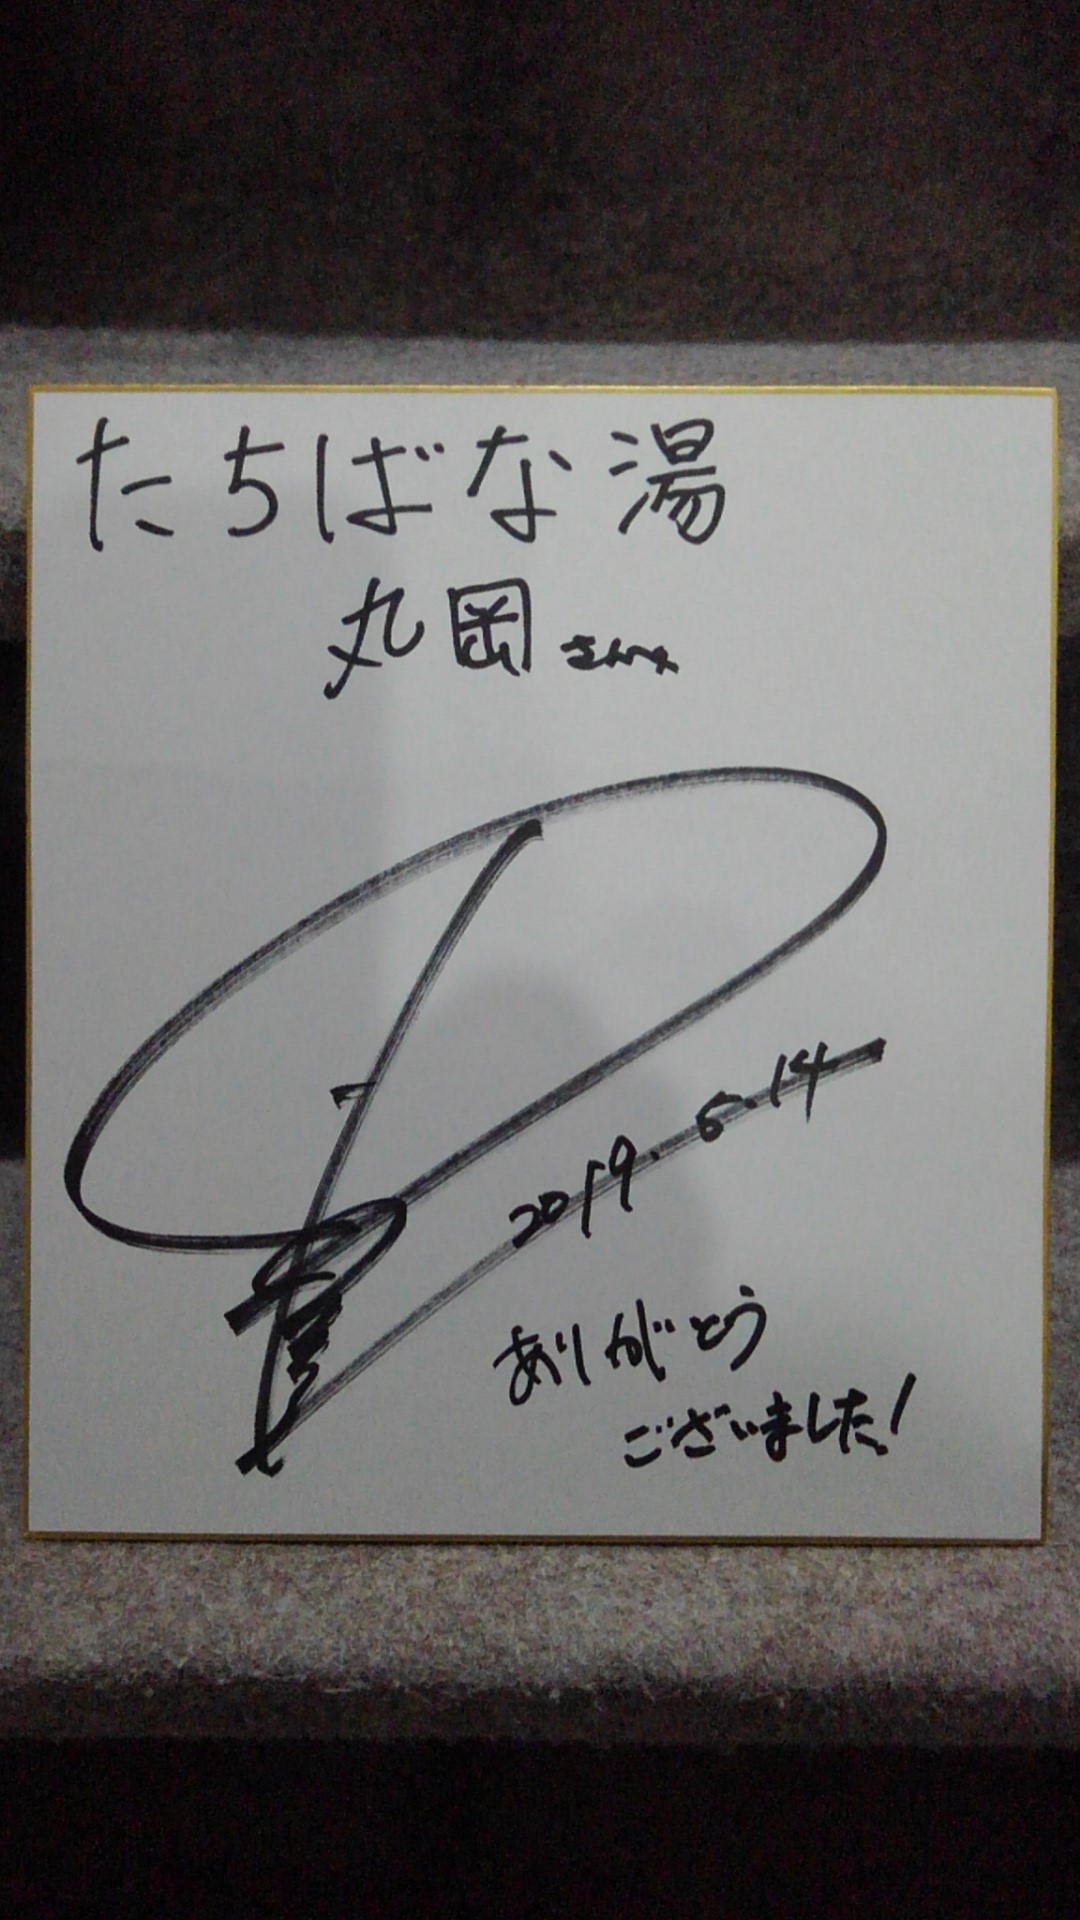 たちばな湯
丸岡さんへ
2019.5.14
ありがとう
ございました!